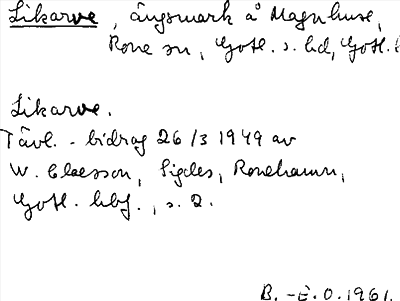 Likarve, ängsmark å Magnhuse,
Rone sn, Gotl. s. hd, Gotl. l
Likarve.
Tävl.-bidrag 26/3 1949 av
W. Claesson, Sigdes, Ronehamn,
Gotl. hbf., s. 2.
B.-E.O. 1961.